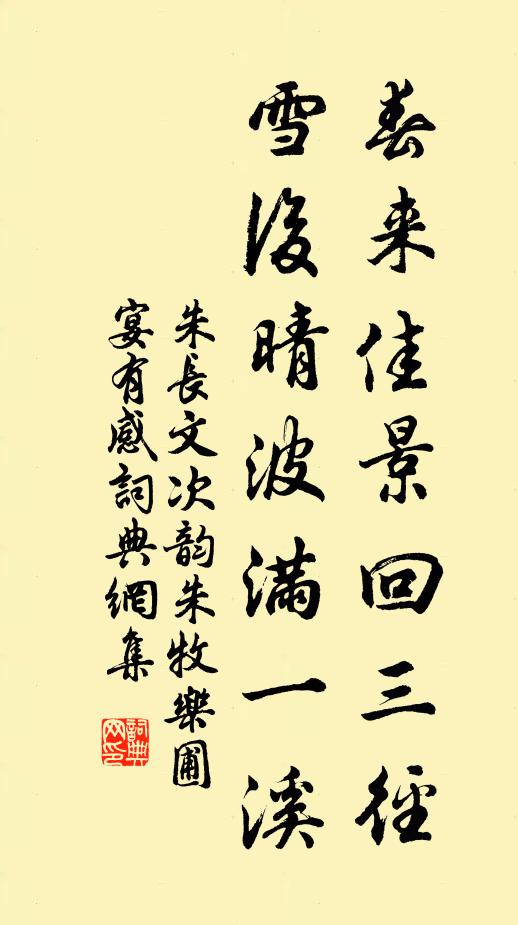 春来佳景回三徑
雪後晴波滿一溪
朱長文次韵朱牧樂圃
宴有感詞典網集
詞典网印